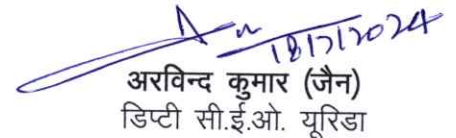 18/7/2024
अरविन्द कुमार (जैन)
डिप्टी सी.ई.ओ. यूरिडा